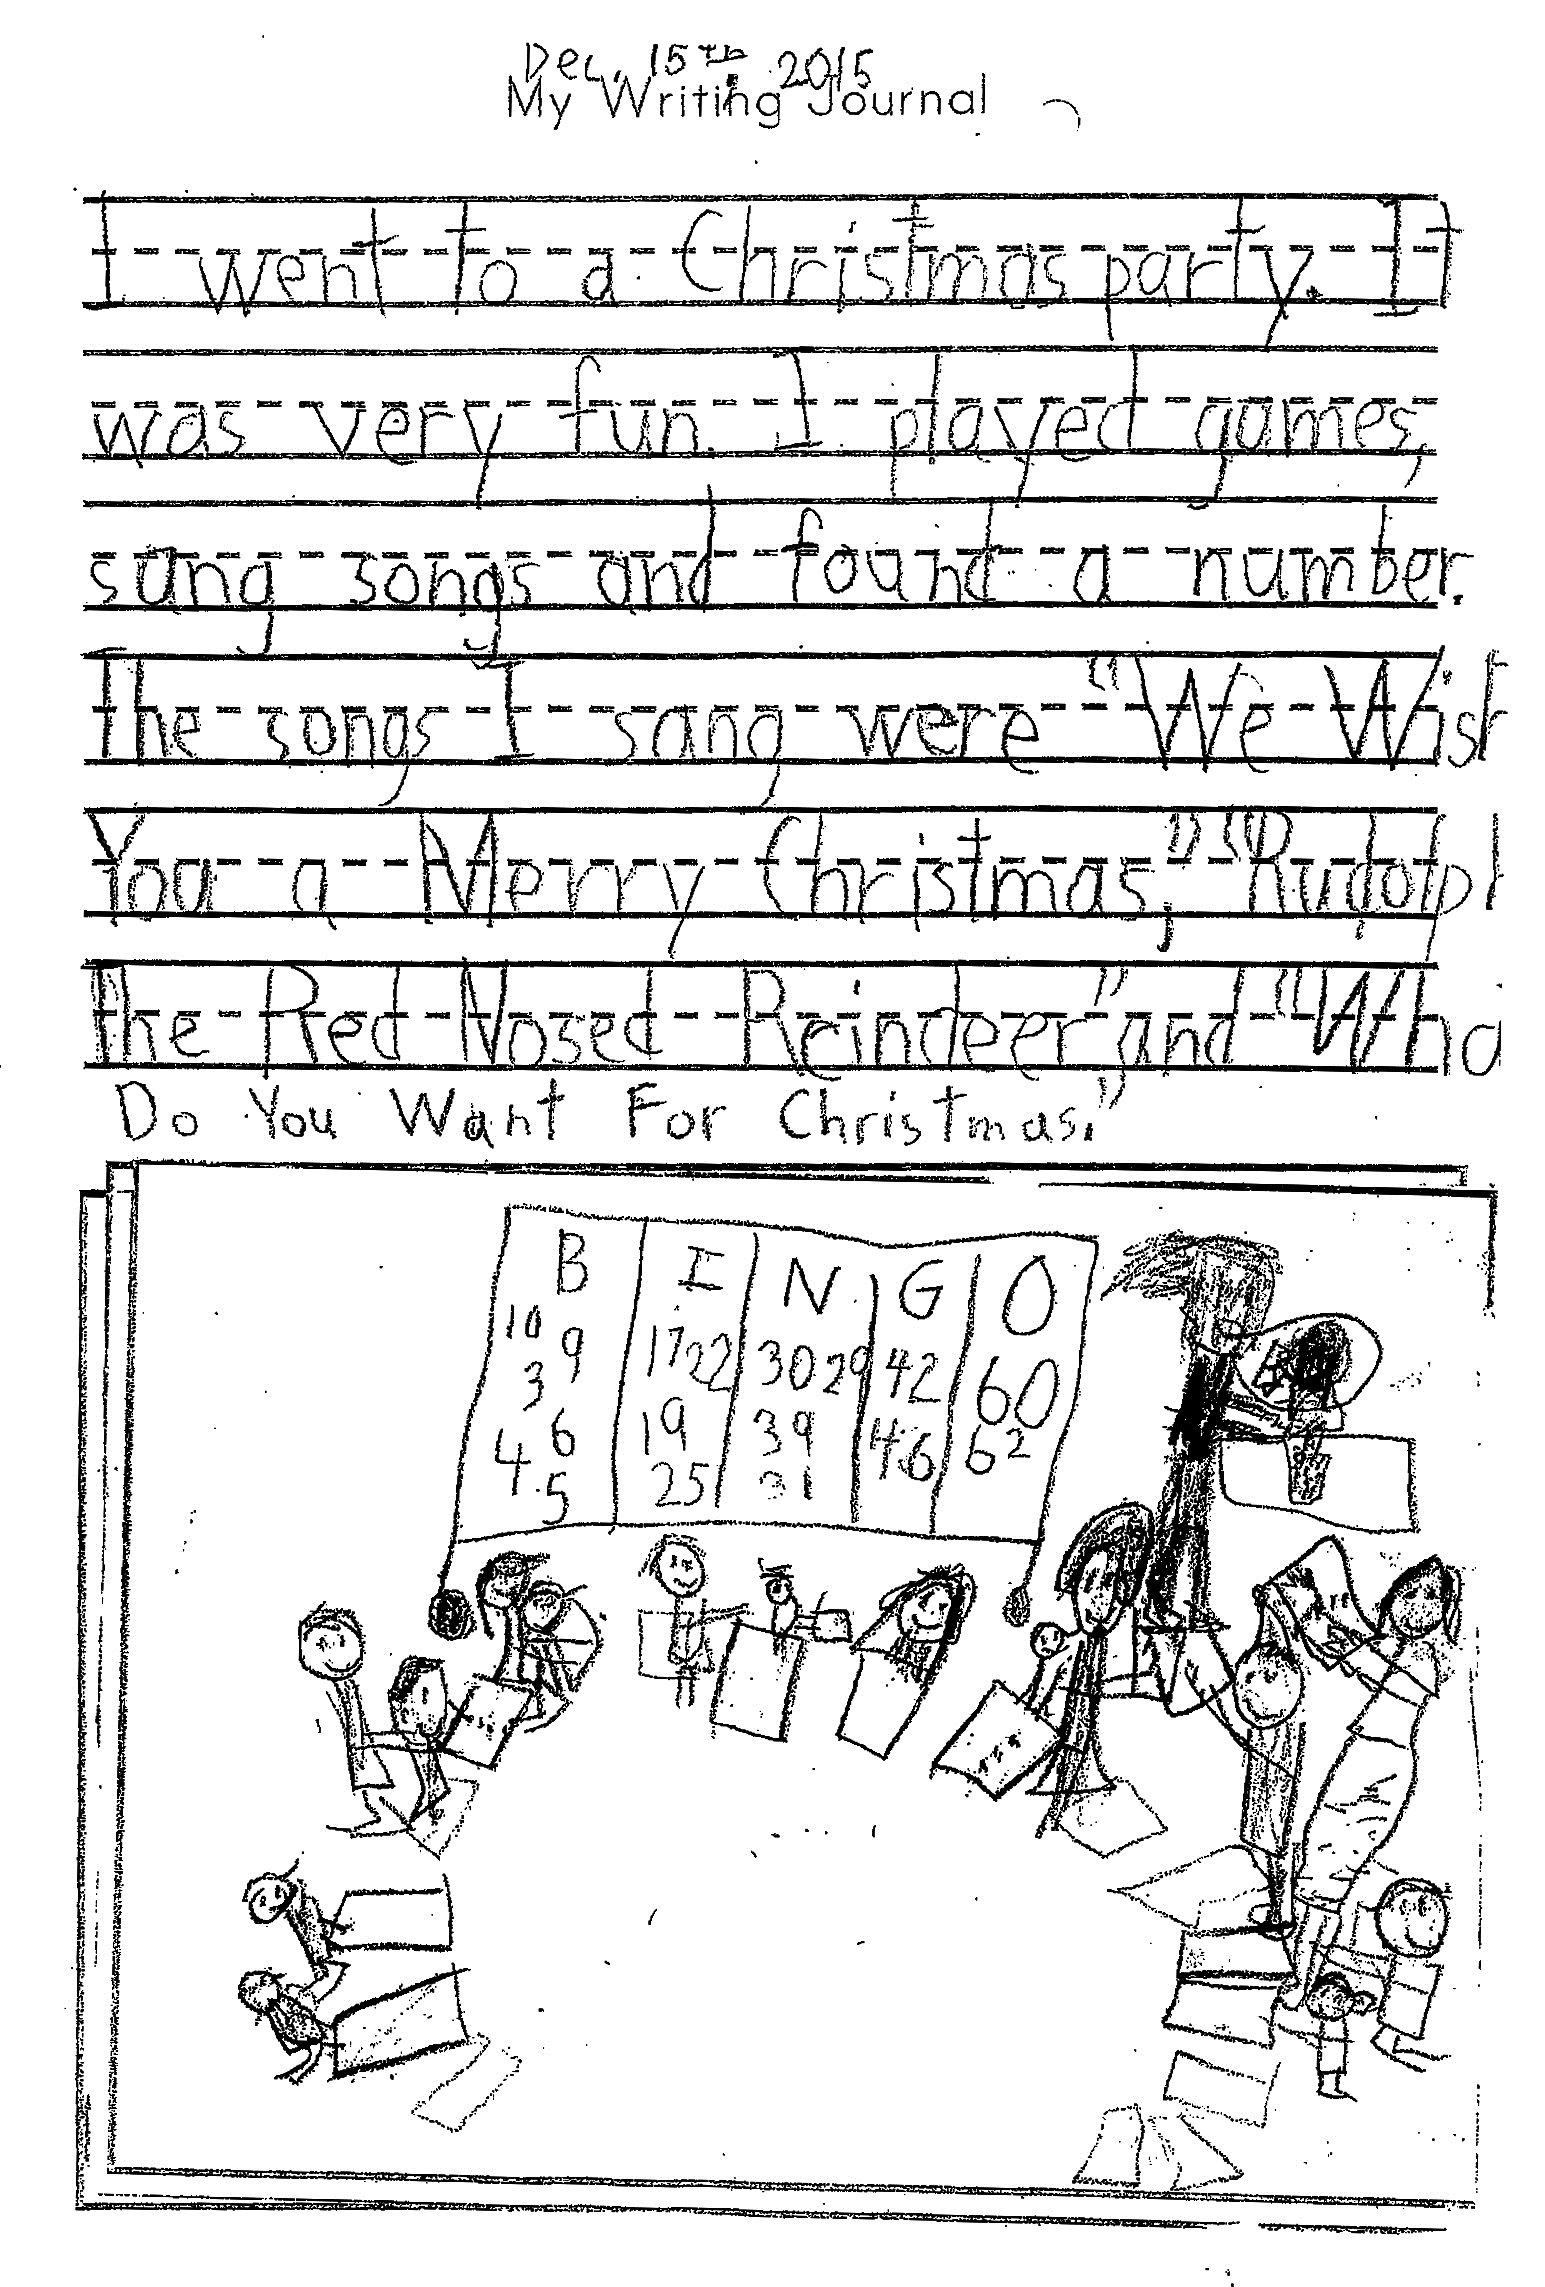 Dec. 15th 2015
My Writing Journal
I went to a Christmas party. It
was very fun. I played games,
sang songs and found a number.
The songs I sang were "We Wish
You a Merry Christmas," "Rudolph
the Red Nosed Reindeer" and "Wha
Do You Want For Christmas."
B I N G O
10 9 17 22 30 29 42 60
3 6 19 39 46 62
4 5 25 31